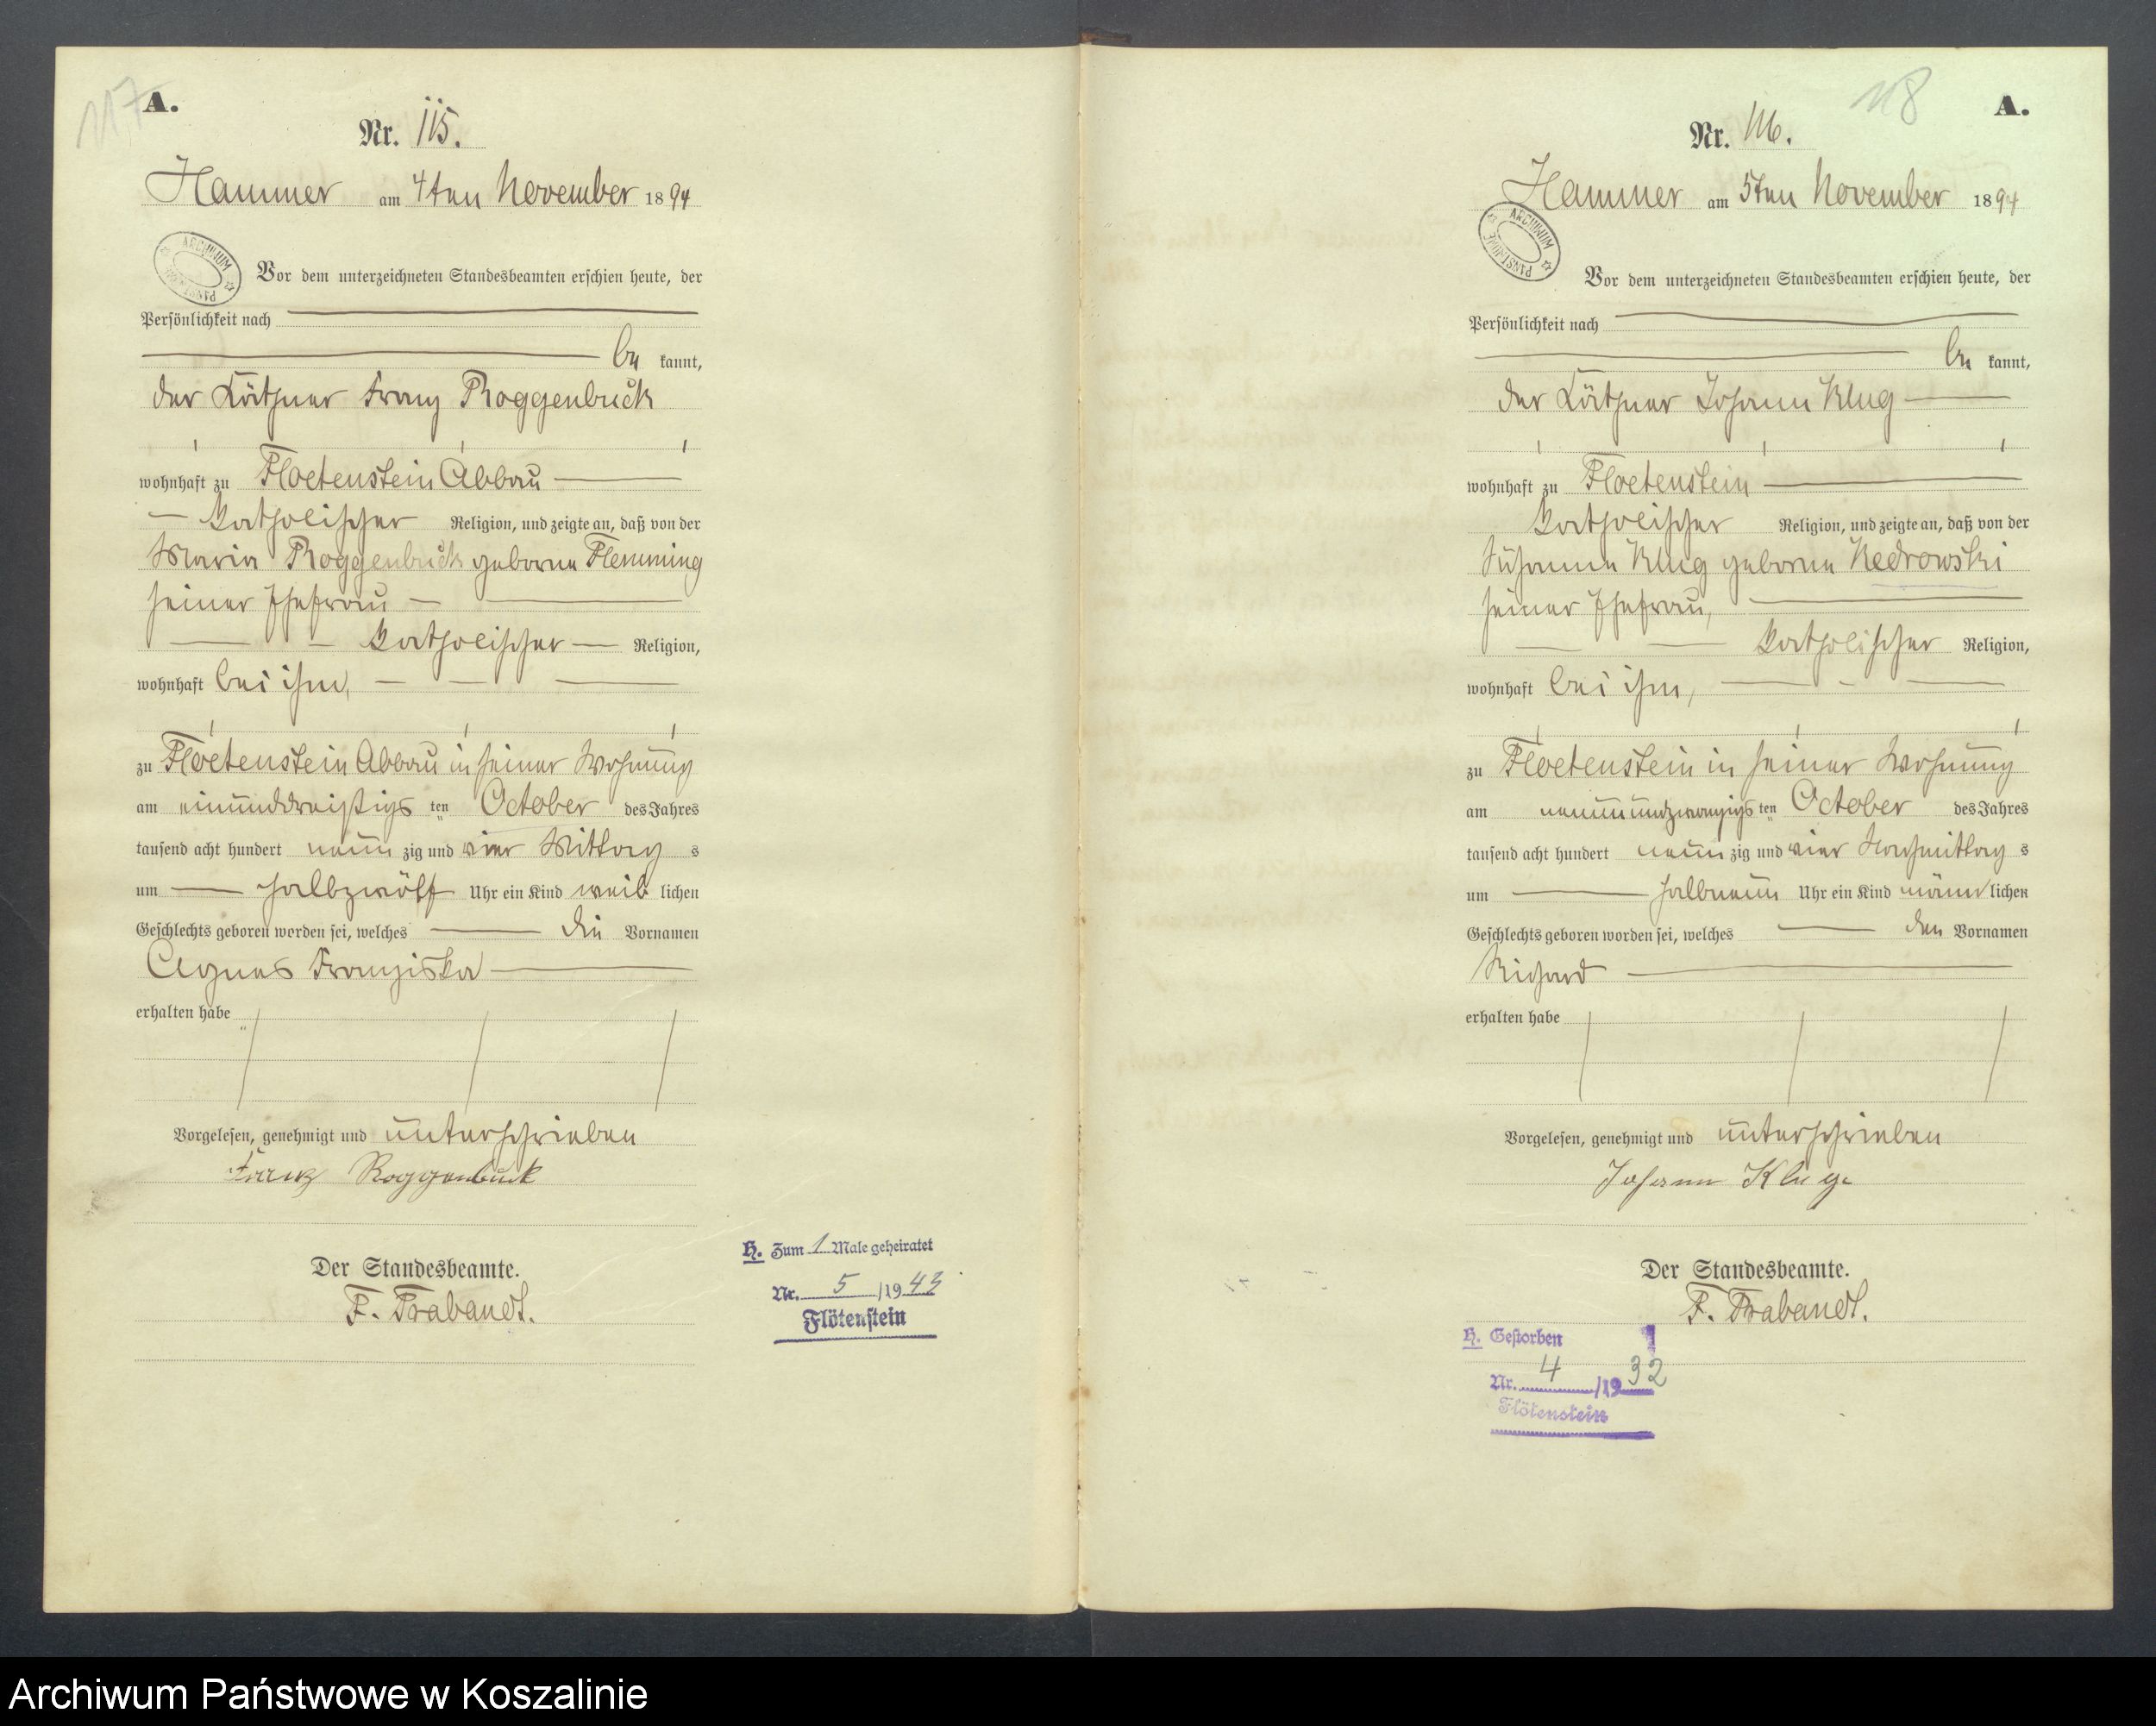 117
A.
Nr. 115.
Hammer am 4ten November 1894
ARCHIWUM PAŃSTWOWE
Vor dem unterzeichneten Standesbeamten erschien heute, der
Persönlichkeit nach
be kannt,
der Käthner Franz Roggenbuck
wohnhaft zu Floetenstein Abbau
katholischer Religion, und zeigte an, daß von der
Maria Roggenbuck geborne Flemming
seiner Ehefrau
katholischer Religion,
wohnhaft bei ihm,
zu Floetenstein Abbau in seiner Wohnung
am einunddreißigs ten October des Jahres
tausend acht hundert neun zig und vier Mittag s
um halbzwölf Uhr ein Kind weib lichen
Geschlechts geboren worden sei, welches die Vornamen
Agnes Franziska
erhalten habe
Vorgelesen, genehmigt und unterschrieben
Franz Roggenbuck
Der Standesbeamte.
F. Trabandt.
H. Zum 1 Male geheiratet
Nr. 5 /1943
Flötenstein
118
A.
Nr. 116.
Hammer am 5ten November 1894
ARCHIWUM PAŃSTWOWE
Vor dem unterzeichneten Standesbeamten erschien heute, der
Persönlichkeit nach
be kannt,
der Käthner Johann Klug
wohnhaft zu Floetenstein
katholischer Religion, und zeigte an, daß von der
Susanna Klug geborne Kedrowski
seiner Ehefrau,
katholischer Religion,
wohnhaft bei ihm,
zu Floetenstein in seiner Wohnung
am neunundzwanzigs ten October des Jahres
tausend acht hundert neun zig und vier Nachmittag s
um halbneun Uhr ein Kind männ lichen
Geschlechts geboren worden sei, welches den Vornamen
Richard
erhalten habe
Vorgelesen, genehmigt und unterschrieben
Johann Klug
Der Standesbeamte.
F. Trabandt.
H. Gestorben
Nr. 4 /1932
Flötenstein
Archiwum Państwowe w Koszalinie